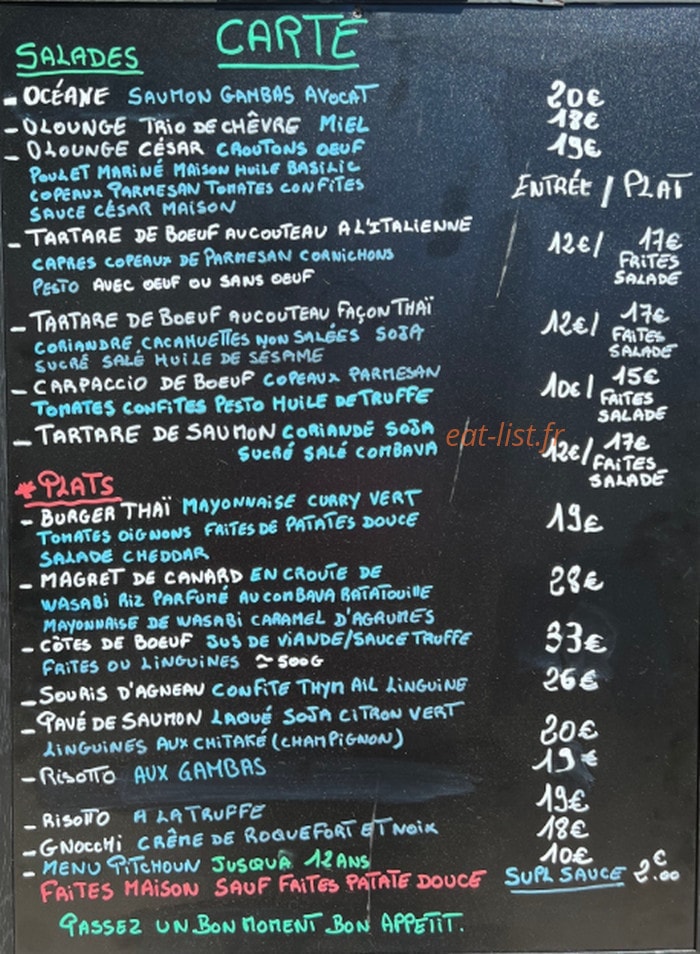 CARTE
SALADES
- OCÉANE SAUMON GAMBAS AVOCAT 20€
- OLOUNGE TRIO DE CHÊVRE MIEL 18€
- OLOUNGE CÉSAR CROUTONS OEUF 19€
POULET MARINÉ MAISON HUILE BASILIC
COPEAUX PARMESAN TOMATES CONFITES
SAUCE CÉSAR MAISON
ENTRÉE / PLAT
- TARTARE DE BOEUF AU COUTEAU A L'ITALIENNE 12€ / 17€
CAPRES COPEAUX DE PARMESAN CORNICHONS FRITES
PESTO AVEC OEUF OU SANS OEUF SALADE
- TARTARE DE BOEUF AU COUTEAU FAÇON THAÏ 12€ / 17€
CORIANDRE CACAHUETTES NON SALÉES SOJA FAITES
SUCRÉ SALÉ HUILE DE SESAME SALADE
- CARPACCIO DE BOEUF COPEAUX PARMESAN 10€ / 15€
TOMATES CONFITES PESTO HUILE DE TRUFFE FAITES
SALADE
- TARTARE DE SAUMON CORIANDE SOJA 12€ / 17€
SUCRÉ SALÉ COMBAVA FAITES
SALADE
eat-list.fr
* PLATS
- BURGER THAÏ MAYONNAISE CURRY VERT 19€
TOMATES OIGNONS FAITES DE PATATES DOUCE
SALADE CHEDDAR
- MAGRET DE CANARD EN CROUTE DE 28€
WASABI RIZ PARFUMÉ AU COMBAVA RATATOUILLE
MAYONNAISE DE WASABI CARAMEL D'AGRUMES
- CÔTES DE BOEUF JUS DE VIANDE/SAUCE TRUFFE 33€
FRITES OU LINGUINES ~ 500G
- SOURIS D'AGNEAU CONFITE THYM AIL LINGUINE 26€
- PAVÉ DE SAUMON LAQUÉ SOJA CITRON VERT 20€
LINGUINES AUX CHITAKÉ (CHAMPIGNON)
- RISOTTO AUX GAMBAS 19€
- RISOTTO A LA TRUFFE 19€
- GNOCCHI CRÊME DE ROQUEFORT ET NOIX 18€
- MENU PITCHOUN JUSQUA 12 ANS 10€
FAITES MAISON SAUF FAITES PATATE DOUCE SUPL SAUCE 2.00€
PASSEZ UN BON MOMENT BON APPETIT.